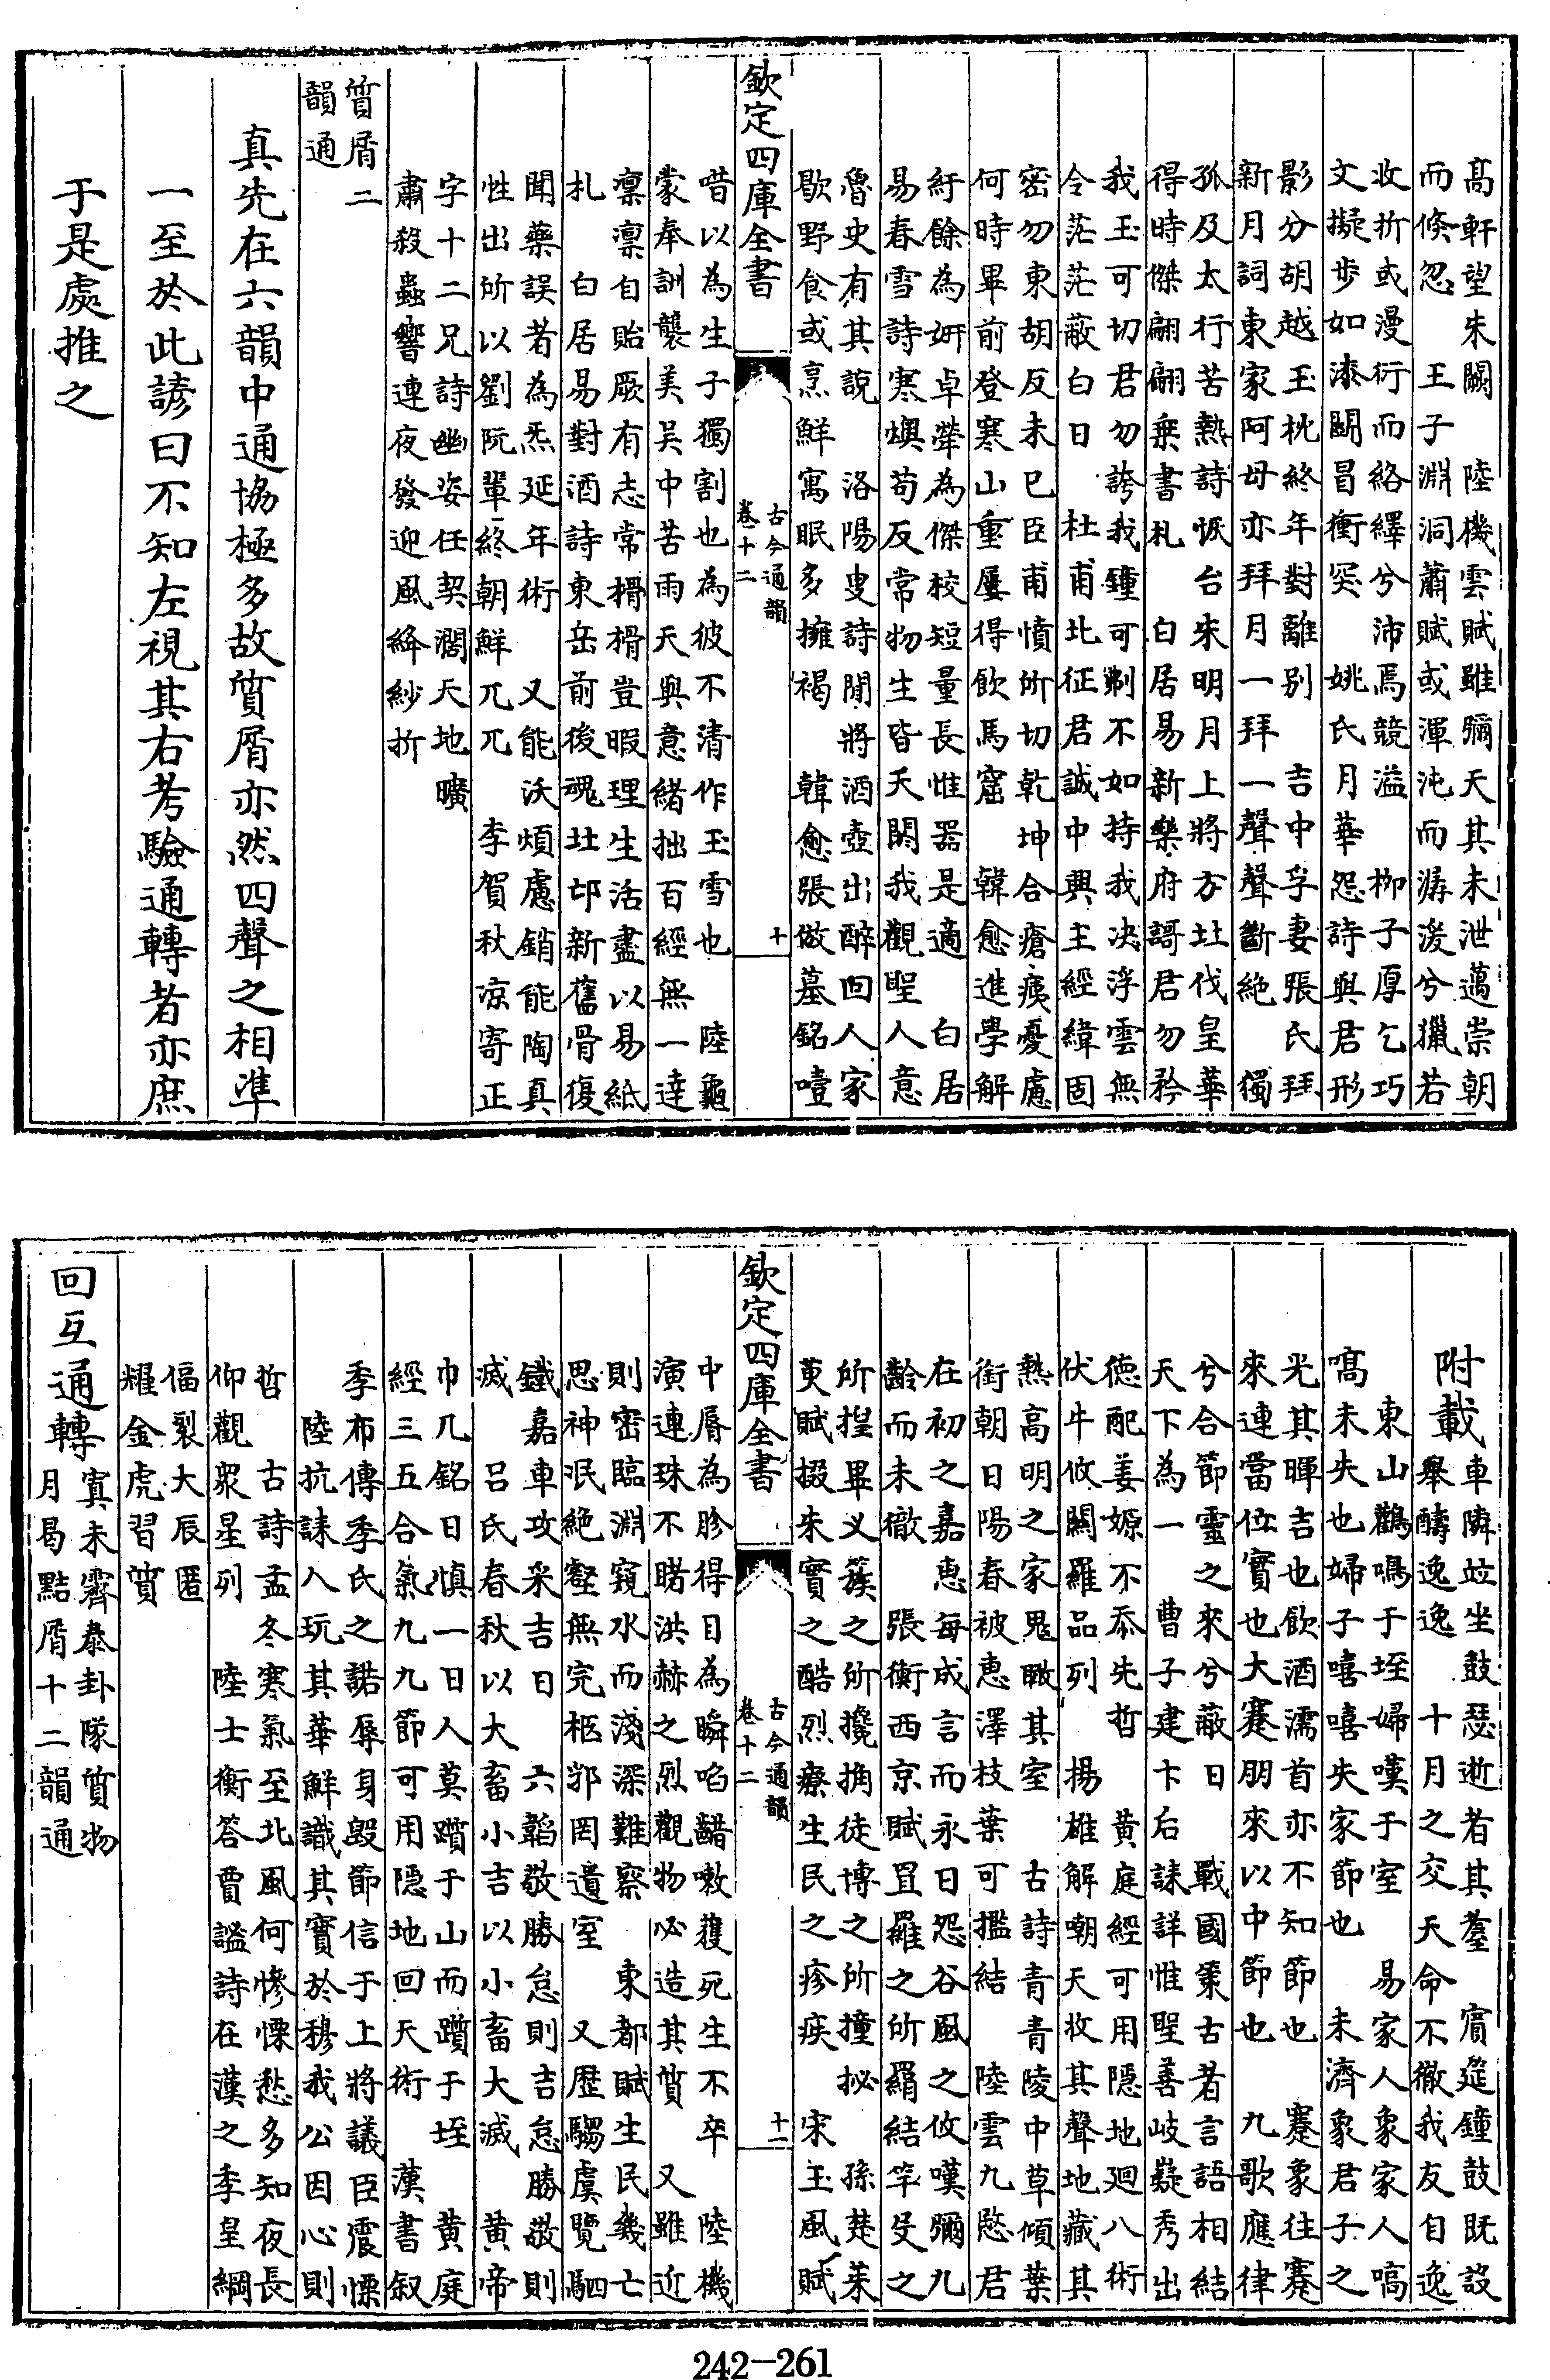 高軒望朱闕　陸機雲賦雖彌天其未泄邁崇朝
而倏忽　王子淵洞蕭賦或渾沌而潺湲兮獵若
收折或漫衍而絡繹兮沛焉競溢　柳子厚乞巧
文擬步如漆闢冒衝突　姚氏月華怨詩與君形
影分胡越玉枕終年對離别　吉中孚妻張氏拜
新月詞東家阿母亦拜月一拜一聲聲斷絶　獨
孤及太行苦熱詩恢台朱明月上將方北伐皇華
得時傑翩翩乗書札　白居易新樂府謌君勿矜
我玉可切君勿誇我鐘可剸不如持我决浮雲無
令茫茫蔽白日　杜甫北征君誠中興主經緯固
密勿東胡反未已臣甫憤所切乾坤合瘡痍憂慮
何時畢前登寒山重屢得飲馬窟　韓愈進學解
紆餘為妍卓犖為傑校短量長惟器是適　白居
易春雪詩寒燠苟反常物生皆夭閼我觀聖人意
魯史有其說　洛陽叟詩閒將酒壺出醉回人家
歇野食或烹鮮寓眠多擁褐　韓愈張倣墓銘噎
欽定四庫全書
古今通韻
卷十二
十
喈以為生子獨割也為彼不清作玉雪也　陸龜
蒙奉訓襲美吴中苦雨天與意緒拙百經無一逹
凛凛自貽厥有志常榾榾豈暇理生活盡以易紙
札　白居易對酒詩東岳前後魂北邙新舊骨復
聞藥誤者為炁延年術　又能沃煩慮銷能陶真
性出所以劉阮輩終朝鮮兀兀　李賀秋凉寄正
字十二兄詩幽姿任契濶天地曠
肅殺蟲響連夜發迎風絳紗折
質屑二
韻通
真先在六韻中通恊極多故質屑亦然四聲之相準
一至於此諺曰不知左視其右考驗通轉者亦庶
于是處推之
附載車隣竝坐鼓瑟逝者其耋　賓筵鐘鼓既設
舉醻逸逸　十月之交天命不徹我友自逸
東山鸛鳴于垤婦嘆于室　易家人象家人嗃
嗃未失也婦子嘻嘻失家節也　未濟象君子之
光其暉吉也飲酒濡首亦不知節也　蹇象往蹇
來連當位實也大蹇朋來以中節也　九歌應律
兮合節靈之來兮蔽日　戰國策古者言語相結
天下為一　曹子建卞后誄詳惟聖善岐嶷秀出
德配姜嫄不忝先哲　黄庭經可用隠地廻八術
伏牛攸闕羅品列　揚雄解嘲天收其聲地藏其
熱高明之家鬼瞰其室　古詩青青陵中草傾葉
銜朝日陽春被惠澤枝葉可攬結　陸雲九愍君
在初之嘉惠每成言而永日怨谷風之攸嘆彌九
齡而未徹　張衡西京賦罝羅之所羂結竿殳之
所揘畢义蔟之所攙捔徒博之所撞㧙　孫楚茱
萸賦掇朱實之酷烈療生民之疹疾　宋玉風賦
欽定四庫全書
古今通韻
卷十二
十一
中脣為胗得目為瞬啗齰嗽獲死生不卒　陸機
演連珠不睹洪赫之烈觀物必造其質　又雖近
則密臨淵窺水而淺深難察　東都賦生民幾亡
思神泯絶壑無完柩郛罔遺室　又歴騶虞覽駟
鐵嘉車攻采吉日　六韜敬勝怠則吉怠勝敬則
滅　吕氏春秋以大畜小吉以小畜大滅　黄帝
巾几銘日慎一日人莫躓于山而躓于垤　黄庭
經三五合氣九九節可用隠地回天術　漢書叙
季布傳季氏之詘辱身毁節信于上將議臣震慄
陸抗誄入玩其華鮮識其實於穆我公因心則
哲　古詩孟冬寒氣至北風何慘慄愁多知夜長
仰觀衆星列　陸士衡答賈謐詩在漢之季皇綱
偪裂大辰匿
耀金虎習質
回互通轉寘未霽泰卦隊質物
月曷黠屑十二韻通
242-261